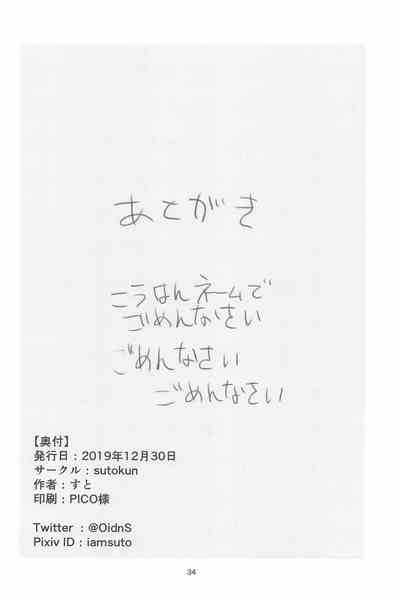 あとがき
こうはんネームで
ゴめんなさい
ごめんなさい
ごめんなさい
【奥付】
発行日：2019年12月30日
サークル：sutokun
作者：すと
印刷：PICO様
Twitter ：@OidnS
Pixiv ID：iamsuto
34